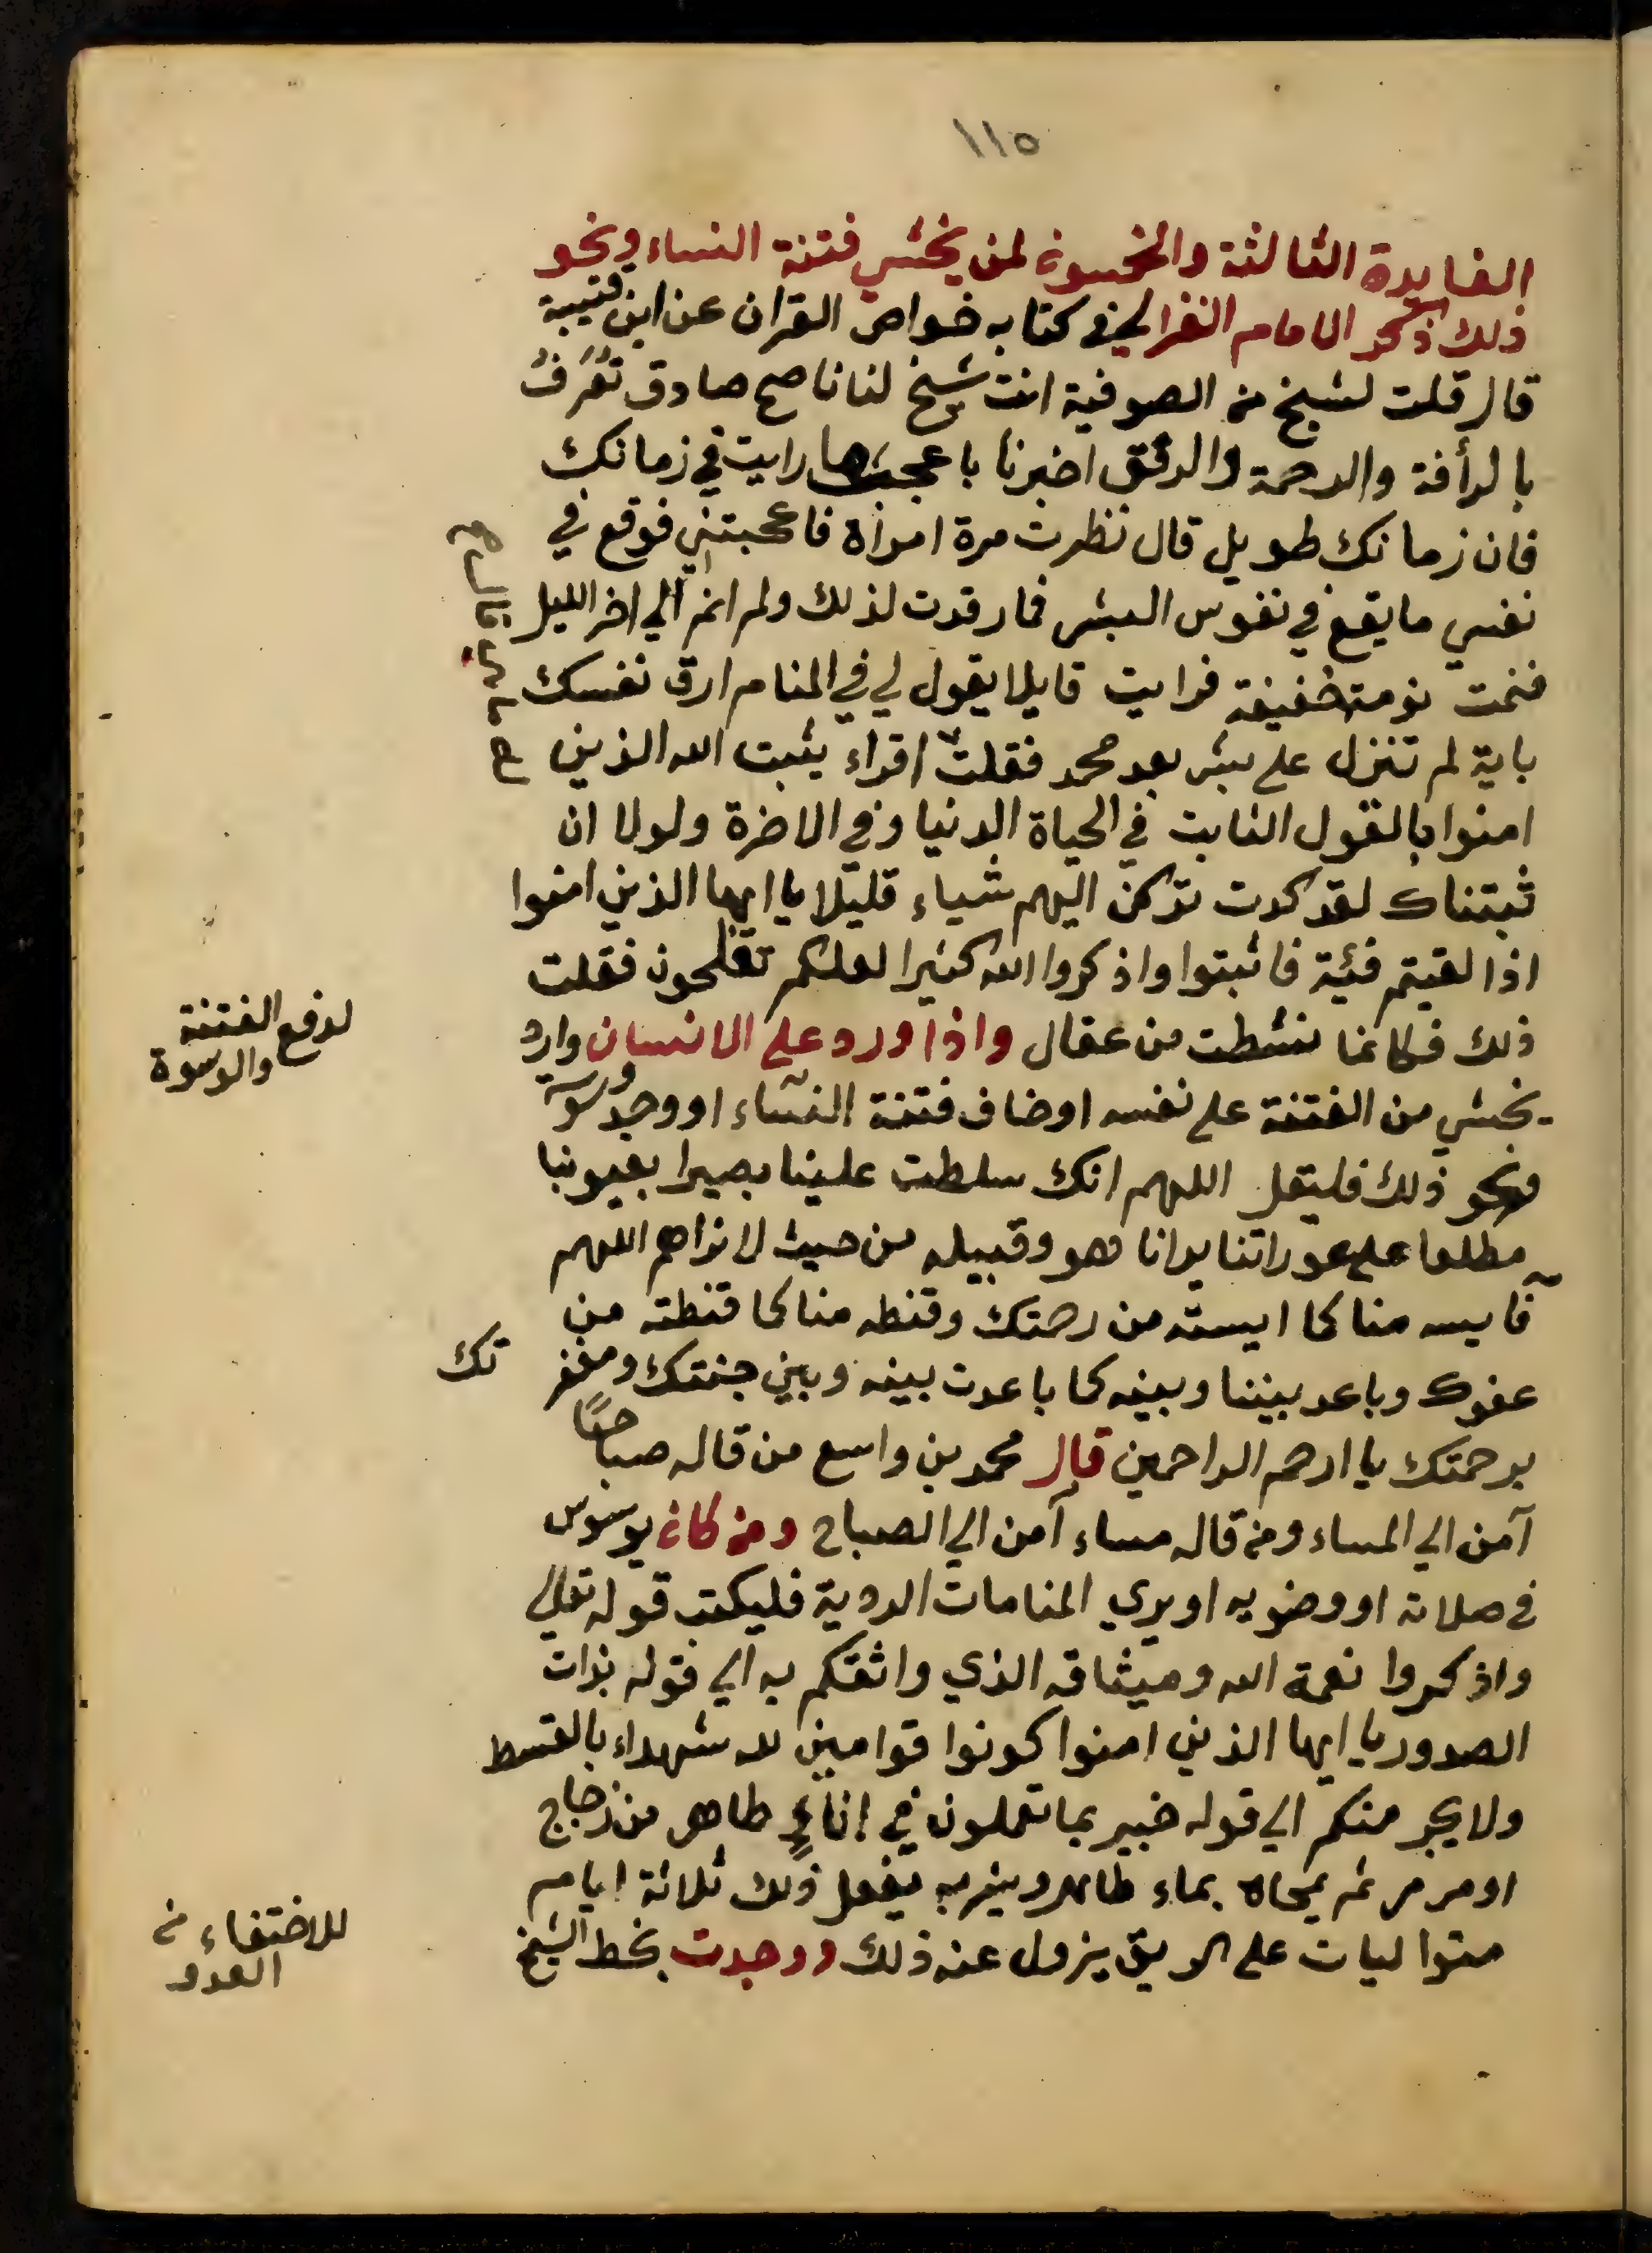 ١١٥
الفايدة الثالثة والخمسون لمن يخشي فتنة النساء ونحو
ذلك ذكر الامام الغزالي في كتابه خواص القران عن ابن قتيبة
قال قلت لشيخ من الصوفية انت شيخ لنا ناصح صادق تعرف
بالرأفة والرحمة والرفق اخبرنا باعجب ما رايت في زمانك
فان زمانك طويل قال نظرت مرة امراة فاعجبتني فوقع في
نفسي ما يقع في نفوس البشر فما رقدت لذلك ولم انم الي اخر الليل
فنمت نومة خفيفة فرايت قايلا يقول لي في المنام ارق نفسك
باية لم تنزل علي بشر بعد محمد فقلت اقراء يثبت الله الذين
امنوا بالقول الثابت في الحياة الدنيا وفي الاخرة ولولا ان
ثبتناك لقد كدت تركن اليهم شياء قليلا يا ايها الذين امنوا
اذا لقيتم فئية فاثبتوا واذكروا الله كثيرا لعلكم تفلحون فقلت
ذلك فكانما نشطت من عقال واذا ورد علي الانسان وارد
يخشي من الفتنة علي نفسه او خاف فتنة النساء او وجد وسوسة
ونحو ذلك فليقل اللهم انك سلطت علينا بصيرا بعيوبنا
مطلعا علي عوراتنا يرانا هو وقبيله من حيث لا نراهم اللهم
فآيسه منا كما ايسته من رحمتك وقنطه منا كما قنطته من
عفوك وباعد بيننا وبينه كما باعدت بينه وبين جنتك ومغفرتك
برحمتك يا ارحم الراحمين قال محمد بن واسع من قاله صباحًا
آمن الي المساء ومن قاله مساء آمن الي الصباح ومن كان يوسوس
في صلاته او وضويه او يري المنامات الردية فليكتب قوله تعالي
واذكروا نعمة الله وميثاقه الذي واثقكم به الي قوله بذات
الصدور يا ايها الذين امنوا كونوا قوامين لله شهداء بالقسط
ولا يجرمنكم الي قوله خبير بما تعملون في اناءٍ طاهر من زجاج
او مرمر ثم يمحاه بماء طاهر ويشربه يفعل ذلك ثلاثة ايام
متواليات علي الريق يزول عنه ذلك ووجدت بخط الشيخ
لدفع الفتنة
والوسوة
للاختفاء من
العدو